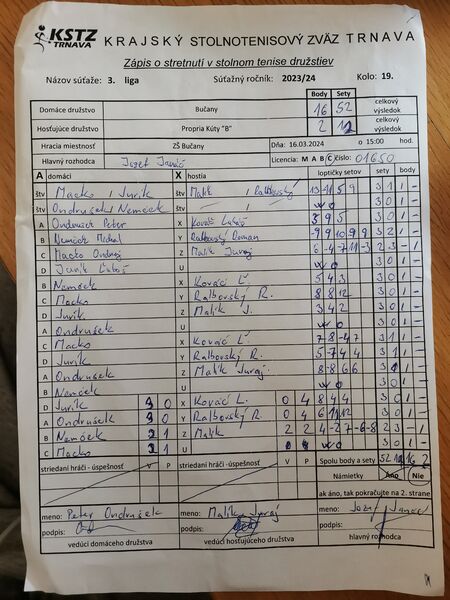 KSTZ
TRNAVA
KRAJSKÝ STOLNOTENISOVÝ ZVÄZ TRNAVA
Zápis o stretnutí v stolnom tenise družstiev
Názov súťaže: 3. liga Súťažný ročník: 2023/24 Kolo: 19.
Body Sety
Domáce družstvo Bučany 16 52 celkový výsledok
Hosťujúce družstvo Propria Kúty "B" 2 celkový výsledok
Hracia miestnosť ZŠ Bučany Dňa: 16.03.2024 o 15:00 hod.
Hlavný rozhodca Jozef Licencia: M A B C číslo: 01650
A domáci X hostia loptičky setov sety body
štv Macko / Jurík štv Malik / Ralbovský 13 -11 5 9 3 1 1 -
štv Ondrušek / Nemček štv WO 3 0 1 -
A Ondrušek Peter X Kováč Ľuboš 3 9 5 3 0 1 -
B Nemček Michal Y Ralbovský Roman -9 9 10 -9 9 3 2 1 -
C Macko Ondrej Z Malik Juraj 6 -4 -7 11 -3 2 3 - 1
D Jurík Ľuboš U WO 3 0 1 -
B Nemček X Kováč Ľ. 5 4 3 3 0 1 -
C Macko Y Ralbovský R. 8 8 12 3 0 1 -
D Jurík Z Malik J. 3 4 2 3 0 1 -
A Ondrušek U WO 3 0 1 -
C Macko X Kováč Ľ. 7 8 -4 7 3 1 1 -
D Jurík Y Ralbovský R. 5 -7 4 4 3 1 1 -
A Ondrušek Z Malik Juraj 8 -8 6 6 3 1 -
B Nemček U WO 3 0 1 -
D Jurík 0 X Kováč L. 0 4 8 4 4 3 0 1 -
A Ondrušek 0 Y Ralbovský R. 0 4 6 11 12 3 0 1 -
B Nemček 1 Z Malik 2 2 4 -2 7 -6 -8 2 3 - 1
C Macko 1 U WO 3 0 1 -
striedaní hráči - úspešnosť V P striedaní hráči - úspešnosť V P Spolu body a sety 52 16 2
Námietky Áno Nie
ak áno, tak pokračujte na 2. strane
meno: Peter Ondrušek meno: Malik Juraj meno: Jozef
podpis: podpis: podpis:
vedúci domáceho družstva vedúci hosťujúceho družstva hlavný rozhodca